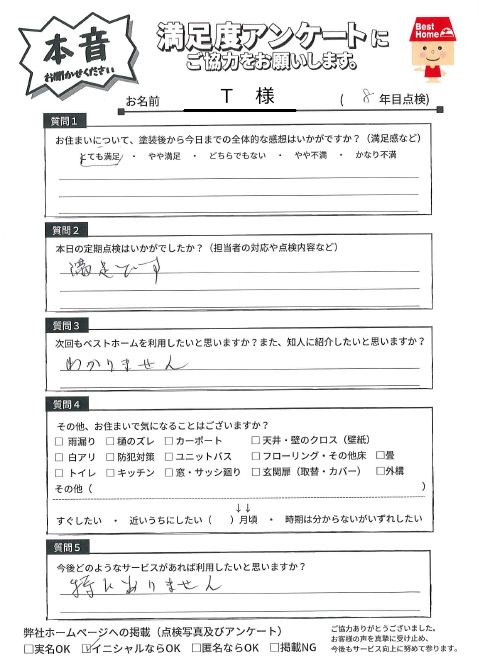 本音
お聞かせください
満足度アンケートに
ご協力をお願いします。
Best Home
お名前 T 様 ( 8 年目点検)
質問1
お住まいについて、塗装後から今日までの全体的な感想はいかがですか？（満足感など）
とても満足 ・ やや満足 ・ どちらでもない ・ やや不満 ・ かなり不満
質問2
本日の定期点検はいかがでしたか？（担当者の対応や点検内容など）
満足です
質問3
次回もベストホームを利用したいと思いますか？また、知人に紹介したいと思いますか？
わかりません
質問4
その他、お住まいで気になることはございますか？
□ 雨漏り □ 樋のズレ □ カーポート □ 天井・壁のクロス（壁紙）
□ 白アリ □ 防犯対策 □ ユニットバス □ フローリング・その他床 □畳
□ トイレ □ キッチン □ 窓・サッシ廻り □ 玄関扉（取替・カバー） □外構
その他（ ）
↓↓
すぐしたい ・ 近いうちにしたい（ ）月頃 ・ 時期は分からないがいずれしたい
質問5
今後どのようなサービスがあれば利用したいと思いますか？
特にありません
弊社ホームページへの掲載（点検写真及びアンケート）
□実名OK ☑イニシャルならOK □匿名ならOK □掲載NG
ご協力ありがとうございました。
お客様の声を真摯に受け止め、
今後もサービス向上に努めて参ります。